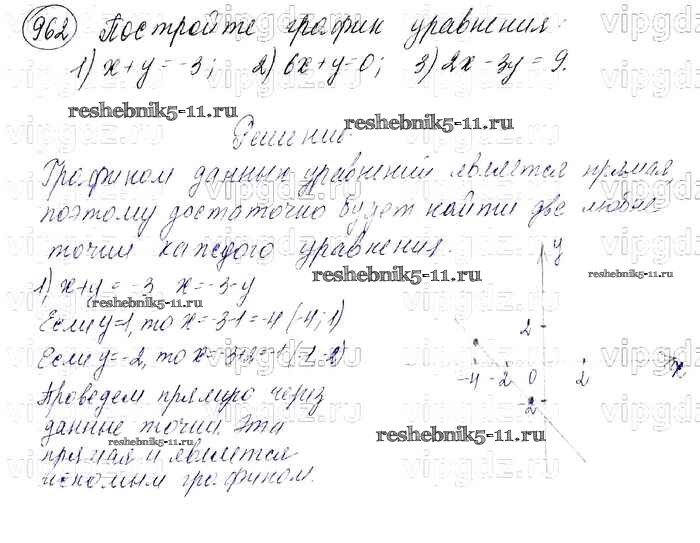 962 Постройте график уравнения:
1) x+y=-3; 2) 6x+y=0; 3) 2x-3y=9.
reshebnik5-11.ru reshebnik5-11.ru
Решение.
Графиком данных уравнений является прямая,
поэтому достаточно будет найти две любые
точки каждого уравнения.
reshebnik5-11.ru reshebnik5-11.ru
1) x+y=-3 x=-3-y
reshebnik5-11.ru
Если y=1, то x=-3-1=-4 (-4;1)
Если y=-2, то x=-3+2=-1 (-1;-2)
Проведем прямую через
данные точки. Эта
reshebnik5-11.ru reshebnik5-11.ru
прямая и является
искомым графиком.
y
2
-4 -2 0 2 x
-2
vipgdz.ru